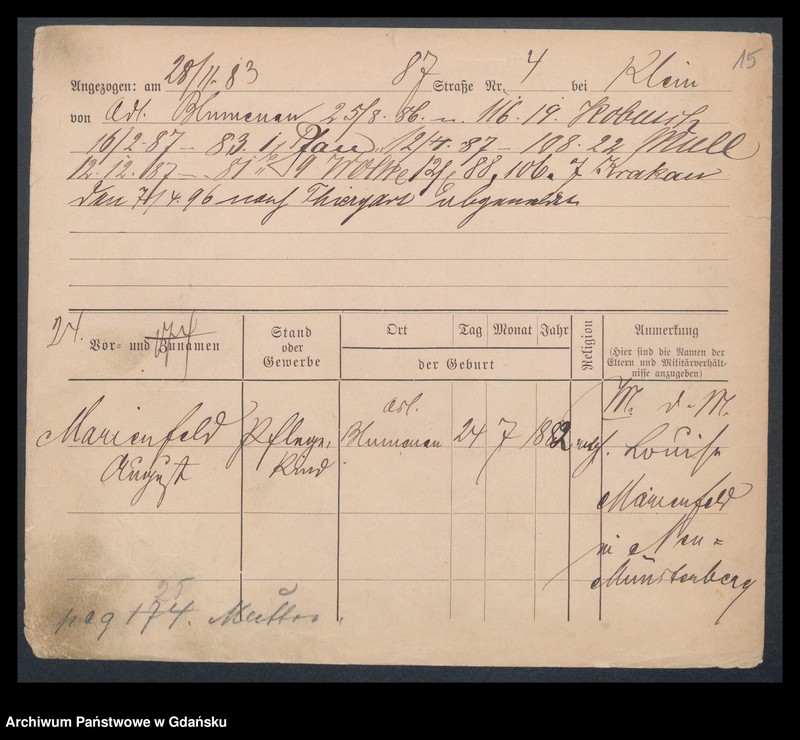 15
Angezogen: am 28/11. 83 87 Straße Nr. 4 bei Klein
von Adl. Blumenau 25/8. 86. – 116. 19. Kobusch
16/2 87 – 83. 12/4. 87 – 108. 22
12. 12. 87 – 81 19 Wölke 88, 106. 7 Krakau
den 7/4. 96 nach Thiergart abgemeldet
24.
Vor- und Zunamen
Stand
oder
Gewerbe
Ort Tag Monat Jahr
der Geburt
Religion
Anmerkung
(Hier sind die Namen der
Eltern und Militärverhält-
nisse anzugeben)
Marienfeld
August
Pflege-
Kind
Adl.
Blumenau 24 7 1882
M. d. M.
Louise
Marienfeld
in Neu-
Münsterberg
25
pag 174. Mutter
Archiwum Państwowe w Gdańsku